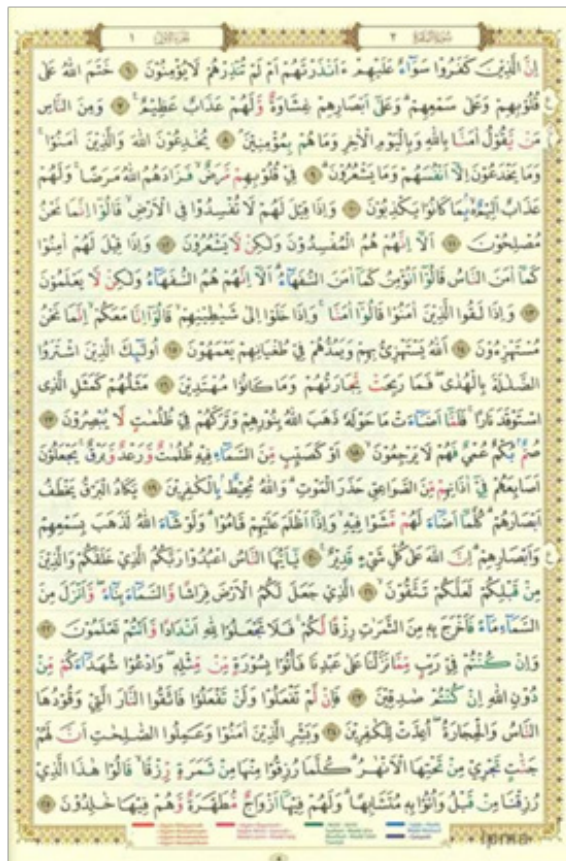 سورة البقرة ٢ الجزء الأول ١
اِنَّ الَّذِيْنَ كَفَرُوْا سَوَآءٌ عَلَيْهِمْ ءَاَنْذَرْتَهُمْ اَمْ لَمْ تُنْذِرْهُمْ لَايُؤْمِنُوْنَ ٦ خَتَمَ اللهُ عَلٰى
قُلُوْبِهِمْ وَعَلٰى سَمْعِهِمْ ۗ وَعَلٰٓى اَبْصَارِهِمْ غِشَاوَةٌ وَّلَهُمْ عَذَابٌ عَظِيْمٌ ࣖ ٧ وَمِنَ النَّاسِ
مَنْ يَّقُوْلُ اٰمَنَّا بِاللهِ وَبِالْيَوْمِ الْاٰخِرِ وَمَا هُمْ بِمُؤْمِنِيْنَ ۘ ٨ يُخٰدِعُوْنَ اللهَ وَالَّذِيْنَ اٰمَنُوْا ۚ
وَمَا يَخْدَعُوْنَ اِلَّآ اَنْفُسَهُمْ وَمَا يَشْعُرُوْنَ ۗ ٩ فِيْ قُلُوْبِهِمْ مَّرَضٌ ۙ فَزَادَهُمُ اللهُ مَرَضًا ۚ وَلَهُمْ
عَذَابٌ اَلِيْمٌ ۢ ەۙ بِمَا كَانُوْا يَكْذِبُوْنَ ١٠ وَاِذَا قِيْلَ لَهُمْ لَا تُفْسِدُوْا فِى الْاَرْضِ ۙ قَالُوْٓا اِنَّمَا نَحْنُ
مُصْلِحُوْنَ ١١ اَلَآ اِنَّهُمْ هُمُ الْمُفْسِدُوْنَ وَلٰكِنْ لَّايَشْعُرُوْنَ ١٢ وَاِذَا قِيْلَ لَهُمْ اٰمِنُوْا
كَمَآ اٰمَنَ النَّاسُ قَالُوْٓا اَنُؤْمِنُ كَمَآ اٰمَنَ السُّفَهَآءُ ۗ اَلَآ اِنَّهُمْ هُمُ السُّفَهَآءُ وَلٰكِنْ لَّا يَعْلَمُوْنَ
١٣ وَاِذَا لَقُوا الَّذِيْنَ اٰمَنُوْا قَالُوْٓا اٰمَنَّا ۚ وَاِذَا خَلَوْا اِلٰى شَيٰطِيْنِهِمْ ۙ قَالُوْٓا اِنَّا مَعَكُمْ ۙ اِنَّمَا نَحْنُ
مُسْتَهْزِءُوْنَ ١٤ اَللهُ يَسْتَهْزِئُ بِهِمْ وَيَمُدُّهُمْ فِيْ طُغْيَانِهِمْ يَعْمَهُوْنَ ١٥ اُولٰۤىِٕكَ الَّذِيْنَ اشْتَرَوُا
الضَّلٰلَةَ بِالْهُدٰىۖ فَمَا رَبِحَتْ تِّجَارَتُهُمْ وَمَا كَانُوْا مُهْتَدِيْنَ ١٦ مَثَلُهُمْ كَمَثَلِ الَّذِى
اسْتَوْقَدَ نَارًا ۚ فَلَمَّآ اَضَآءَتْ مَا حَوْلَهٗ ذَهَبَ اللهُ بِنُوْرِهِمْ وَتَرَكَهُمْ فِيْ ظُلُمٰتٍ لَّا يُبْصِرُوْنَ ١٧
صُمٌّ ۢ بُكْمٌ عُمْيٌ فَهُمْ لَا يَرْجِعُوْنَ ۙ ١٨ اَوْ كَصَيِّبٍ مِّنَ السَّمَآءِ فِيْهِ ظُلُمٰتٌ وَّرَعْدٌ وَّبَرْقٌ ۚ يَجْعَلُوْنَ
اَصَابِعَهُمْ فِيْٓ اٰذَانِهِمْ مِّنَ الصَّوَاعِقِ حَذَرَ الْمَوْتِ ۗ وَاللهُ مُحِيْطٌۢ بِالْكٰفِرِيْنَ ١٩ يَكَادُ الْبَرْقُ يَخْطَفُ
اَبْصَارَهُمْ ۗ كُلَّمَآ اَضَآءَ لَهُمْ مَّشَوْا فِيْهِ ۙ وَاِذَآ اَظْلَمَ عَلَيْهِمْ قَامُوْا ۗ وَلَوْ شَآءَ اللهُ لَذَهَبَ بِسَمْعِهِمْ
وَاَبْصَارِهِمْ ۗ اِنَّ اللهَ عَلٰى كُلِّ شَيْءٍ قَدِيْرٌ ࣖ ٢٠ يٰٓاَيُّهَا النَّاسُ اعْبُدُوْا رَبَّكُمُ الَّذِيْ خَلَقَكُمْ وَالَّذِيْنَ
مِنْ قَبْلِكُمْ لَعَلَّكُمْ تَتَّقُوْنَ ۙ ٢١ الَّذِيْ جَعَلَ لَكُمُ الْاَرْضَ فِرَاشًا وَّالسَّمَآءَ بِنَآءً ۖ وَّاَنْزَلَ مِنَ
السَّمَآءِ مَآءً فَاَخْرَجَ بِهٖ مِنَ الثَّمَرٰتِ رِزْقًا لَّكُمْ ۚ فَلَا تَجْعَلُوْا لِلّٰهِ اَنْدَادًا وَّاَنْتُمْ تَعْلَمُوْنَ ٢٢
وَاِنْ كُنْتُمْ فِيْ رَيْبٍ مِّمَّا نَزَّلْنَا عَلٰى عَبْدِنَا فَأْتُوْا بِسُوْرَةٍ مِّنْ مِّثْلِهٖ ۖ وَادْعُوْا شُهَدَآءَكُمْ مِّنْ
دُوْنِ اللهِ اِنْ كُنْتُمْ صٰدِقِيْنَ ٢٣ فَاِنْ لَّمْ تَفْعَلُوْا وَلَنْ تَفْعَلُوْا فَاتَّقُوا النَّارَ الَّتِيْ وَقُوْدُهَا
النَّاسُ وَالْحِجَارَةُ ۖ اُعِدَّتْ لِلْكٰفِرِيْنَ ٢٤ وَبَشِّرِ الَّذِيْنَ اٰمَنُوْا وَعَمِلُوا الصّٰلِحٰتِ اَنَّ لَهُمْ
جَنّٰتٍ تَجْرِيْ مِنْ تَحْتِهَا الْاَنْهٰرُ ۗ كُلَّمَا رُزِقُوْا مِنْهَا مِنْ ثَمَرَةٍ رِّزْقًا ۙ قَالُوْا هٰذَا الَّذِيْ
رُزِقْنَا مِنْ قَبْلُ وَاُتُوْا بِهٖ مُتَشَابِهًا ۗ وَلَهُمْ فِيْهَآ اَزْوَاجٌ مُّطَهَّرَةٌ وَّهُمْ فِيْهَا خٰلِدُوْنَ ٢٥